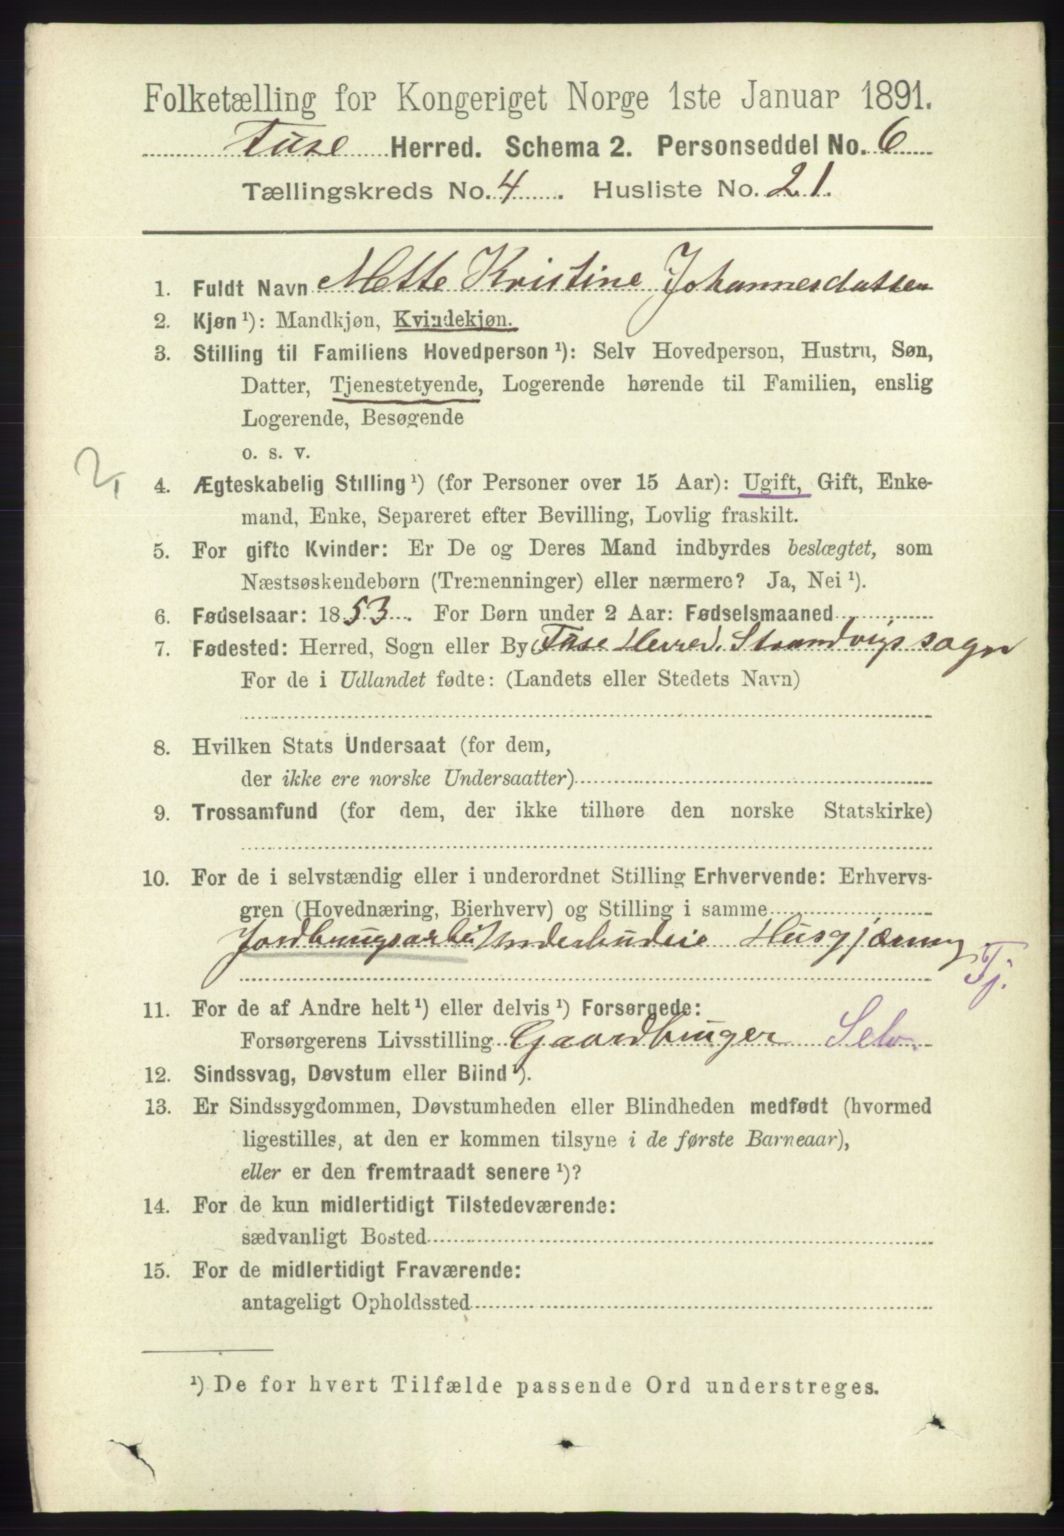 Folketælling for Kongeriget Norge 1ste Januar 1891.
Fuse Herred. Schema 2. Personseddel No. 6
Tællingskreds No. 4. Husliste No. 21.
1. Fuldt Navn Mette Kristine Johannesdatter
2. Kjøn ¹): Mandkjøn, Kvindekjøn.
3. Stilling til Familiens Hovedperson ¹): Selv Hovedperson, Hustru, Søn,
Datter, Tjenestetyende, Logerende hørende til Familien, enslig
Logerende, Besøgende
o. s. v.
2,
4. Ægteskabelig Stilling ¹) (for Personer over 15 Aar): Ugift, Gift, Enke-
mand, Enke, Separeret efter Bevilling, Lovlig fraskilt.
5. For gifte Kvinder: Er De og Deres Mand indbyrdes beslægtet, som
Næstsøskendebørn (Tremenninger) eller nærmere? Ja, Nei ¹).
6. Fødselsaar: 1853. For Børn under 2 Aar: Fødselsmaaned
7. Fødested: Herred, Sogn eller By Fuse Herred. Strandvigs sogn
For de i Udlandet fødte: (Landets eller Stedets Navn)
8. Hvilken Stats Undersaat (for dem,
der ikke ere norske Undersaatter)
9. Trossamfund (for dem, der ikke tilhøre den norske Statskirke)
10. For de i selvstændig eller i underordnet Stilling Erhvervende: Erhvervs-
gren (Hovednæring, Bierhverv) og Stilling i samme
Jordbrugsarbei Husgjærning
Tj.
11. For de af Andre helt ¹) eller delvis ¹) Forsørgede:
Forsørgerens Livsstilling Gaardbruger Selv.
12. Sindssvag, Døvstum eller Blind ¹).
13. Er Sindssygdommen, Døvstumheden eller Blindheden medfødt (hvormed
ligestilles, at den er kommen tilsyne i de første Barneaar),
eller er den fremtraadt senere ¹)?
14. For de kun midlertidigt Tilstedeværende:
sædvanligt Bosted
15. For de midlertidigt Fraværende:
antageligt Opholdssted
¹) De for hvert Tilfælde passende Ord understreges.